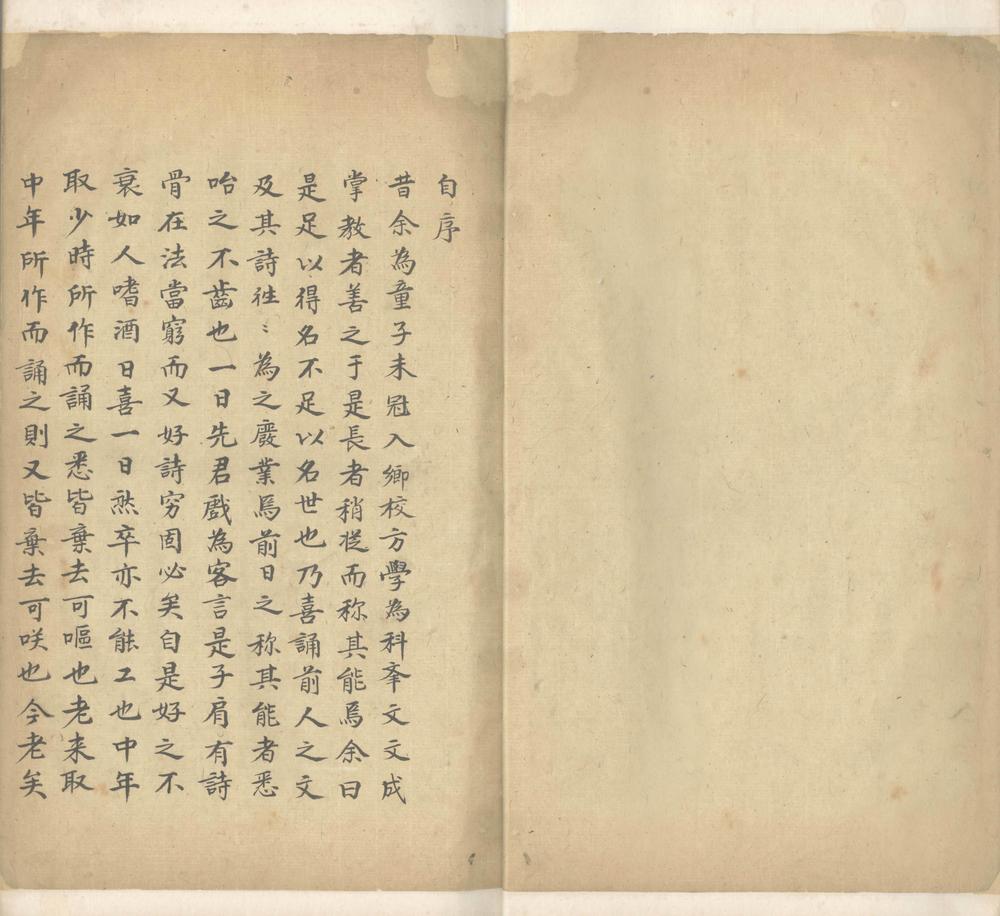 自序
昔余為童子未冠入鄉校方學為科舉文文成
掌教者善之于是長者稍從而称其能焉余曰
是足以得名不足以名世也乃喜誦前人之文
及其詩往〻為之廢業焉前日之称其能者悉
咍之不齒也一日先君戲為客言是子肩有詩
骨在法當窮而又好詩穷固必矣自是好之不
衰如人嗜酒日喜一日然卒亦不能工也中年
取少時所作而誦之悉皆棄去可嘔也老来取
中年所作而誦之則又皆棄去可咲也今老矣